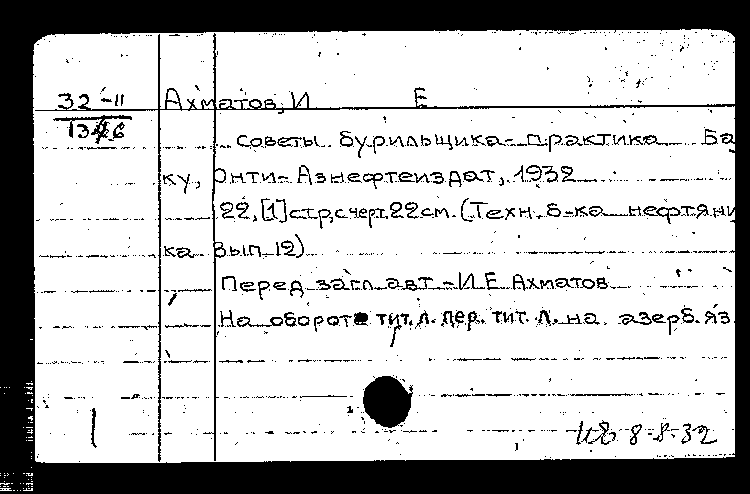 32-11 Ахматов, И Е.
советы бурильщика-практика Ба
ку, Онти-Азнефтеиздат, 1932
22,[1]стр,счерт,22см.(Техн.б-ка нефтяни
ка Вып 12)
Перед загл авт-И Е Ахматов
На обороте тит. л. пер. тит. л. на азерб. яз.
8-8-32